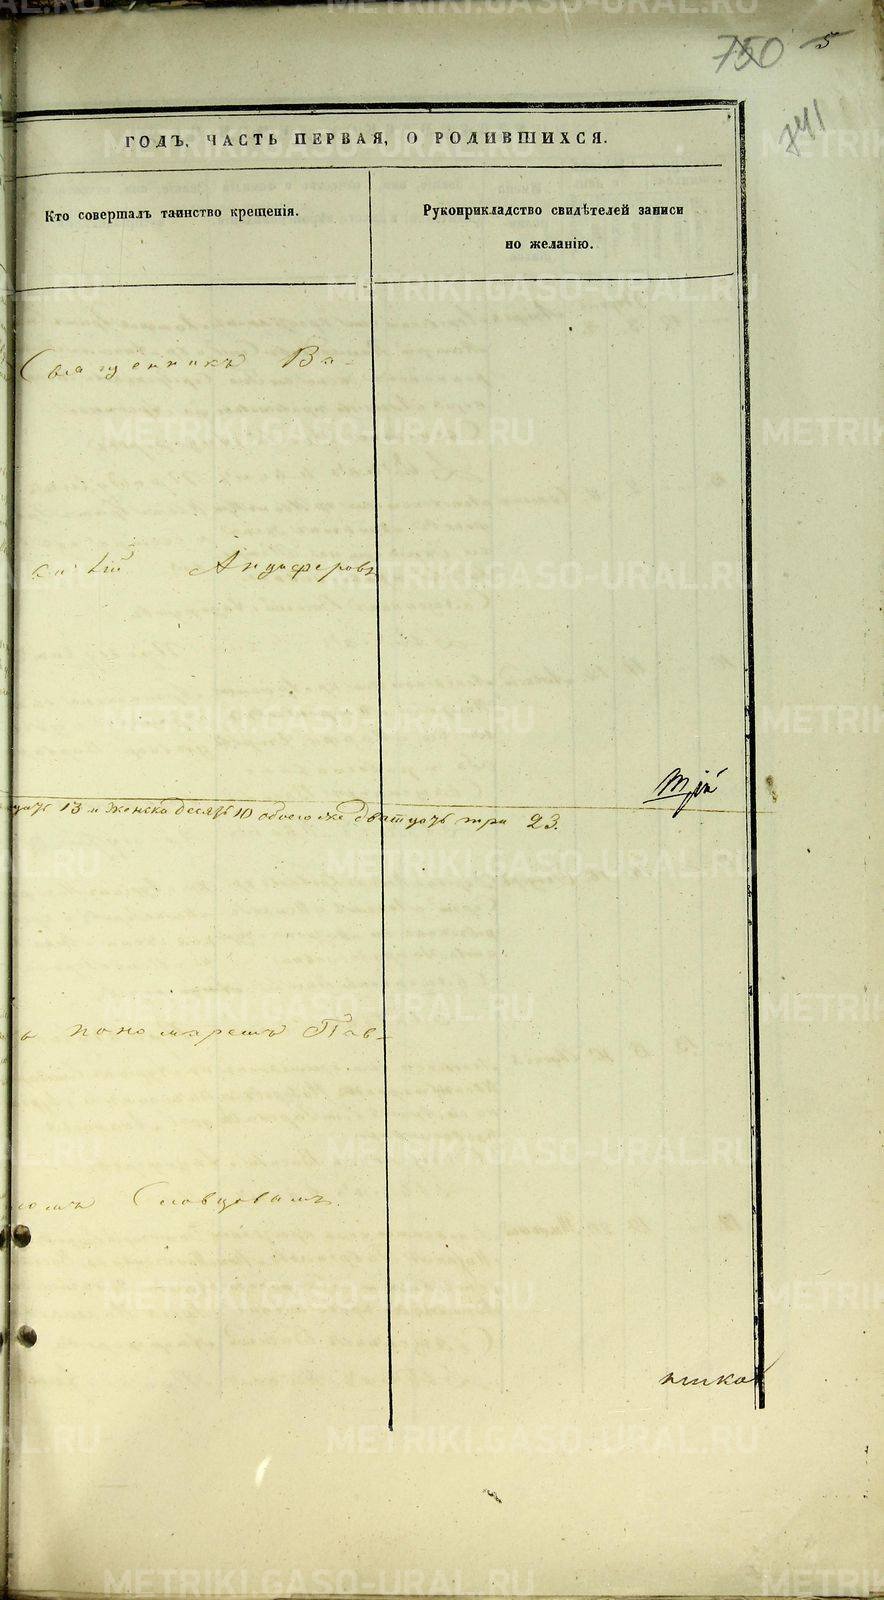 750 5
741
ГОДЪ, ЧАСТЬ ПЕРВАЯ, О РОДИВШИХСЯ.
Кто совершалъ таинство крещенія.
Рукоприкладство свидѣтелей записи
по желанію.
Священникъ Ва-
силій Андіферовъ
13 и женска десять 10 обоего же двадцать три 23.
пономаремъ Пав-
ломъ Словцовымъ.
METRIKI.GASO-URAL.RU